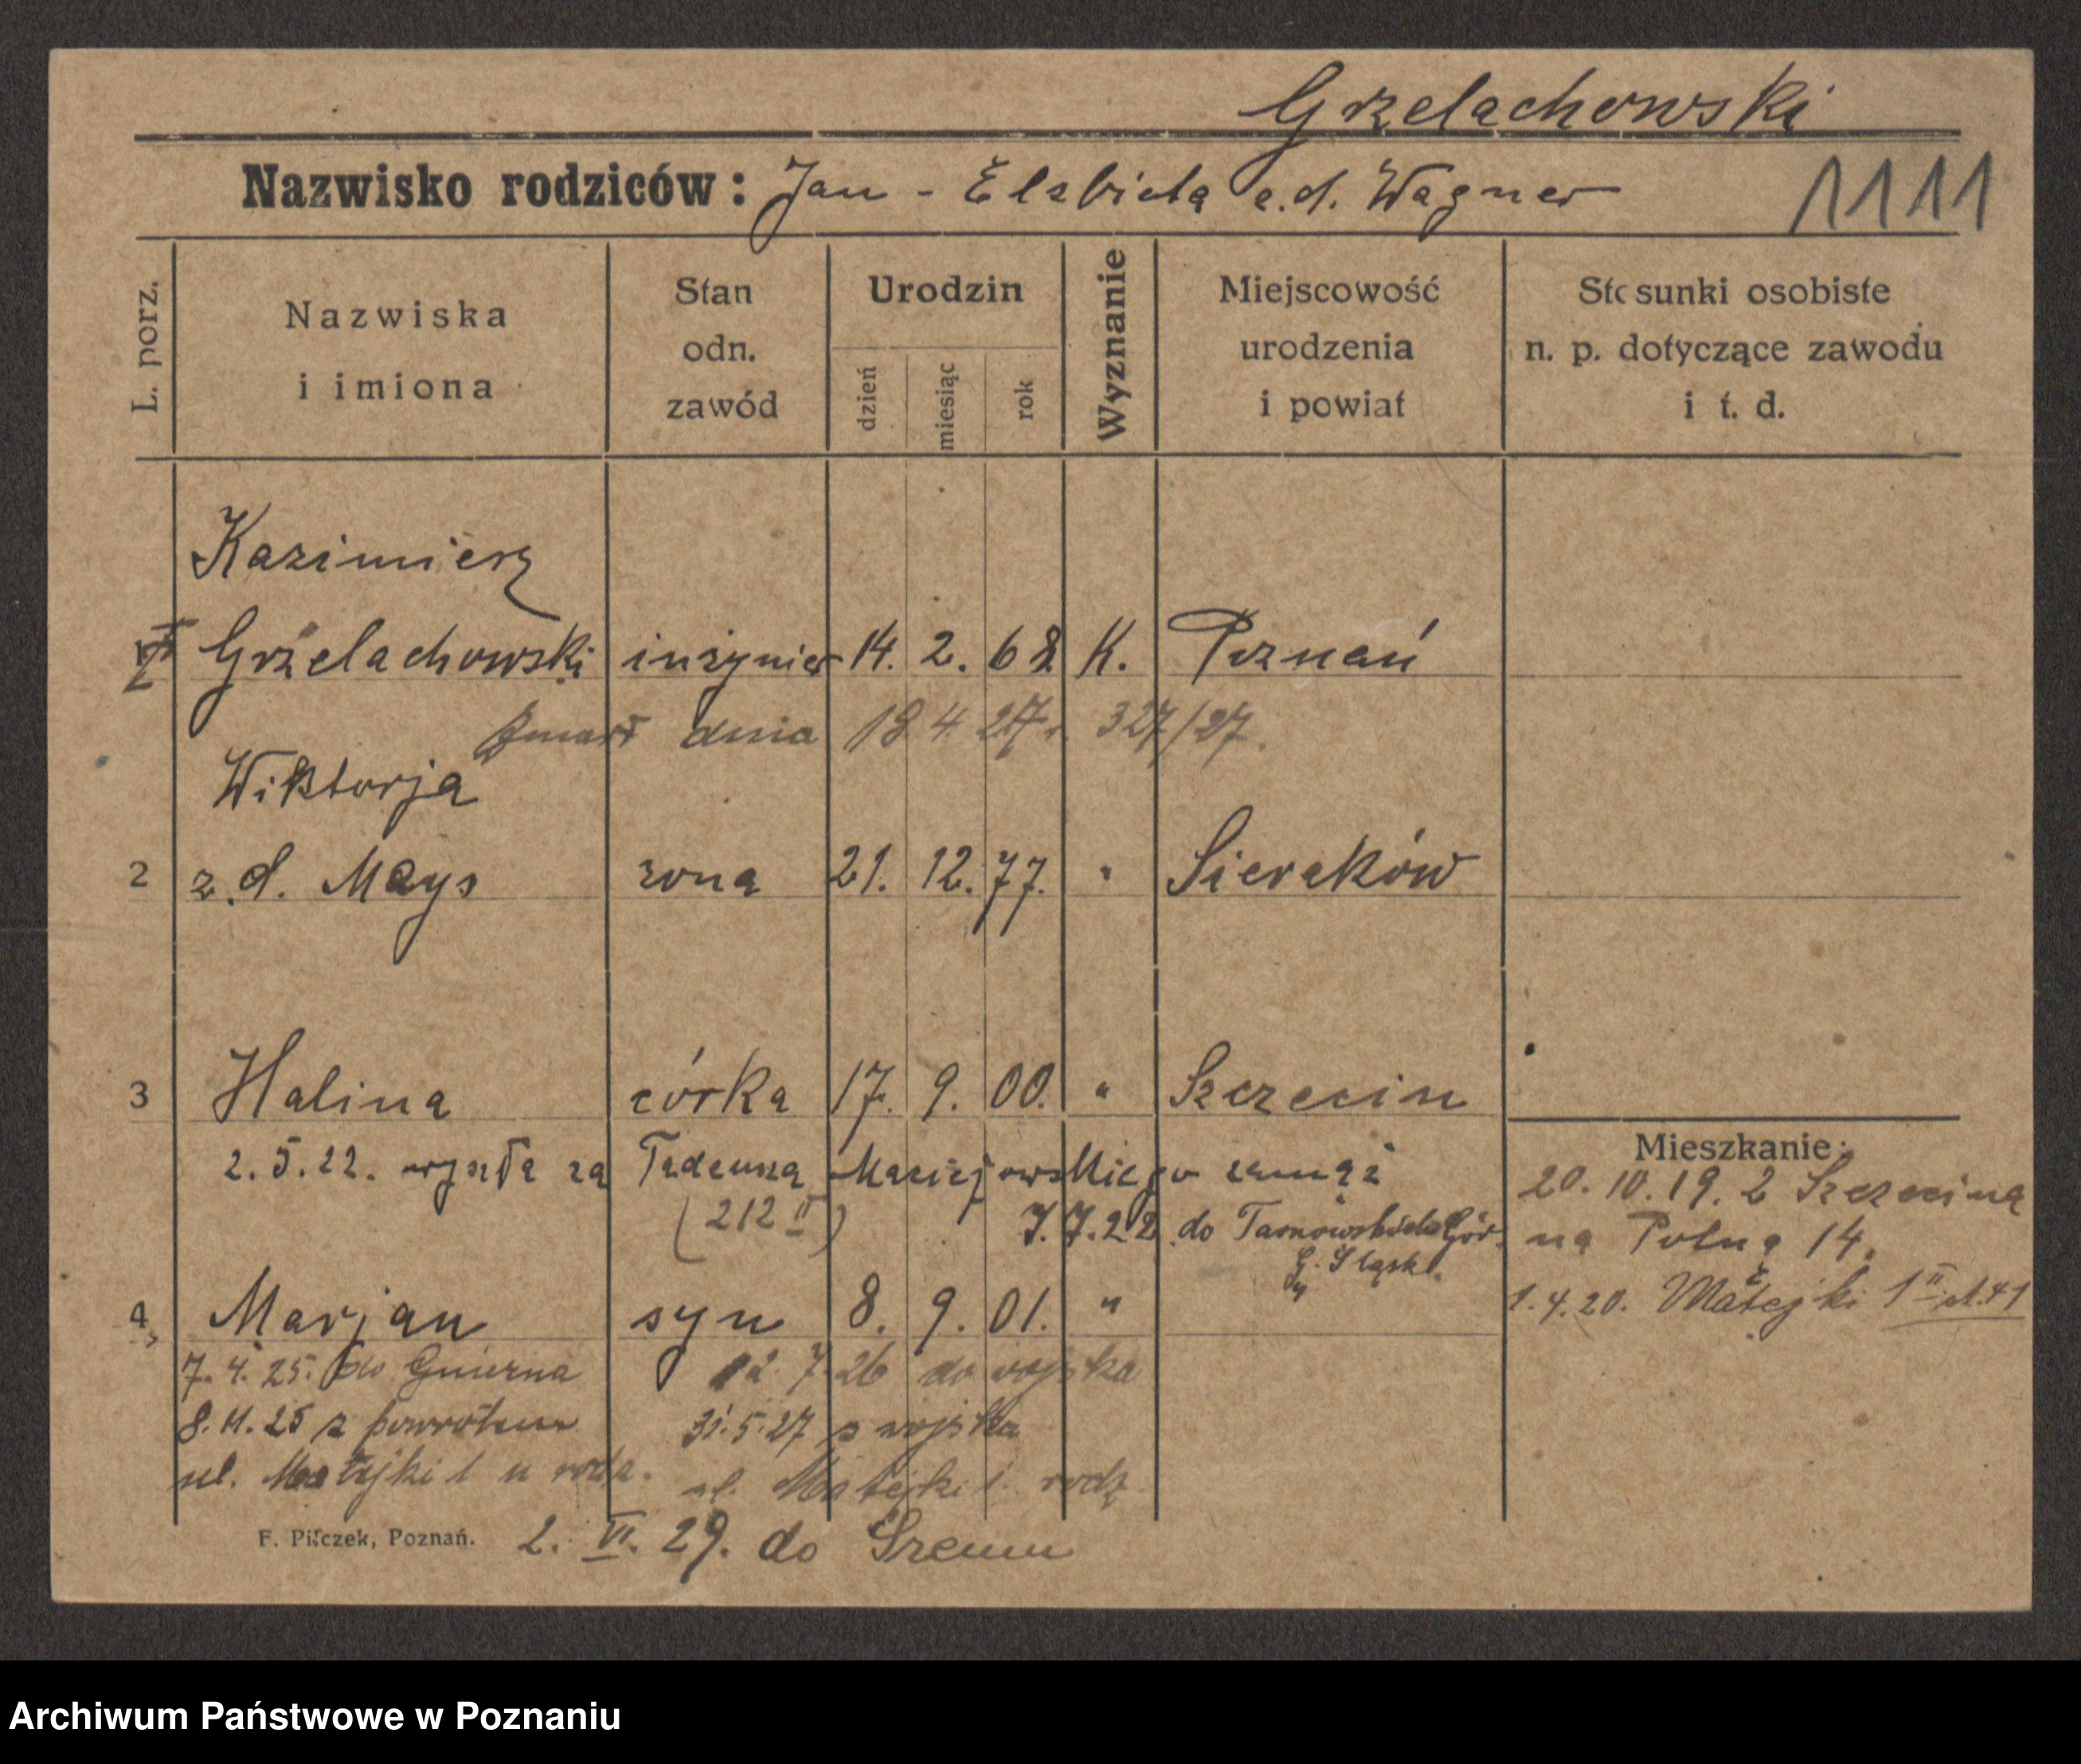 Grzelachowski
Nazwisko rodziców: Jan - Elzbieta z.d. Wagner
1111
L. porz.
Nazwiska i imiona
Stan odn. zawód
Urodzin
dzień miesiąc rok
Wyznanie
Miejscowość urodzenia i powiat
Stosunki osobiste n. p. dotyczące zawodu i t. d.
Kazimierz
Grzelachowski inżynier 14. 2. 68 K. Poznań
zmarł dnia 18 4 27 r. 327/27.
Wiktorja
2 z.d. Mays żona 21. 12. 77. " Sieraków
3 Halina córka 17. 9. 00. " Szczecin
2.5.22. wyszła za Tadeusza Maciejowskiego zamąż
(212 II) 7.7.22 do Tarnowskich Gór.
G. Śląsk.
Mieszkanie:
20.10.19. z Szczecina
na Polną 14.
1.4.20. Matejki 1 II
4 Marjan syn 8. 9. 01. "
7.4.25. do Gniezna 12.7.26 do wojska
8.11.25 z powrotem 31.5.27 z wojska
ul. Matejki 1 u rodz. ul. Matejki 1. rodz.
F. Pilczek, Poznań.
2. VI. 29. do Śremu
Archiwum Państwowe w Poznaniu